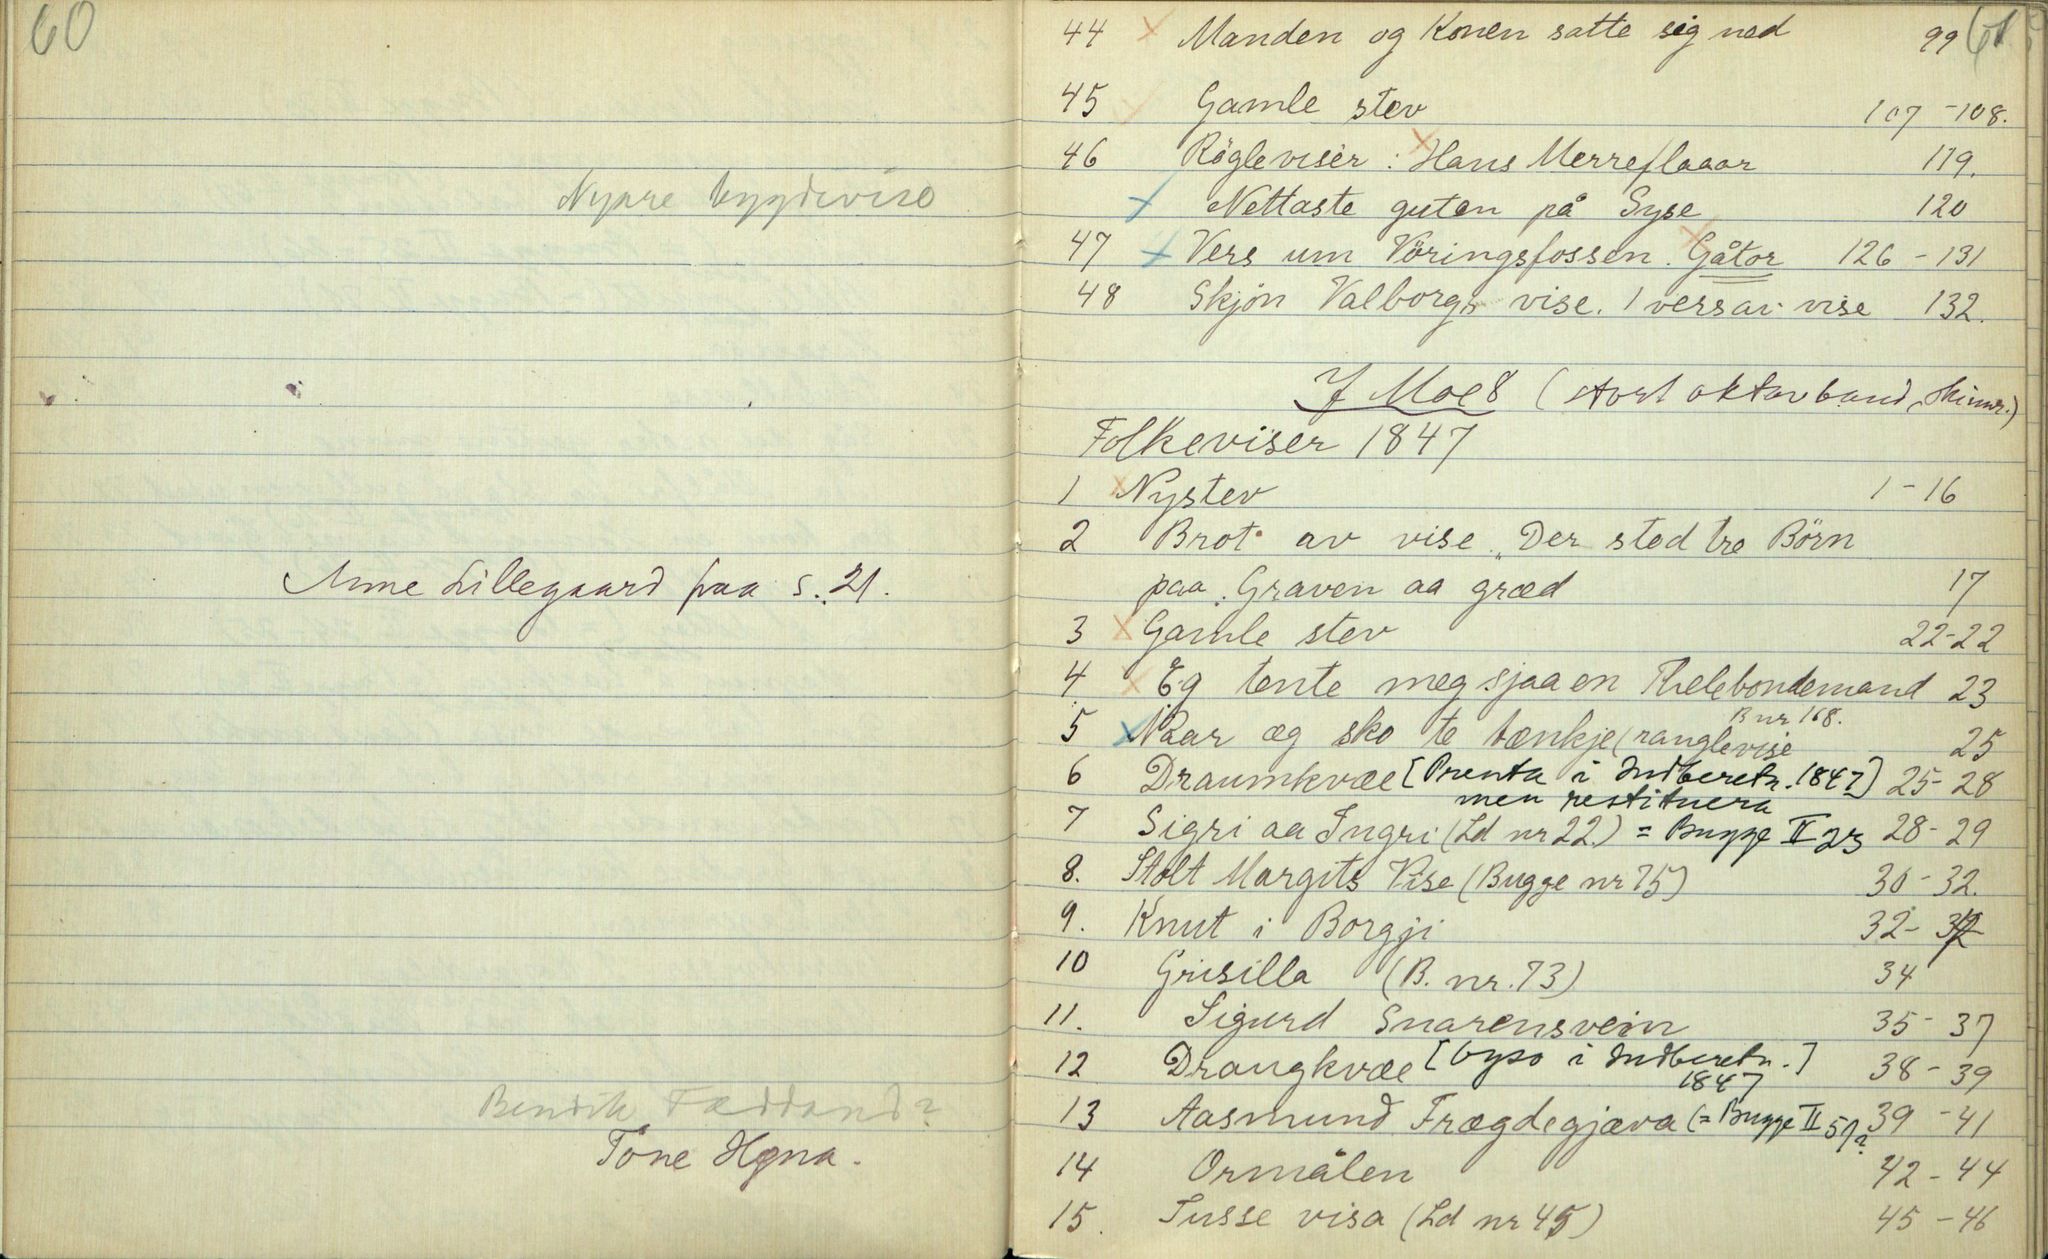 60
Nyare bygdevise
Anne Lillegaard paa s. 21.
Bendik
Tone Hegna.
61
44 Manden og Konen satte sig ned 99
45 Gamle stev 107-108.
46 Røglevisèr: Hans Merreflaaar 119.
Nettaste guten på Syse 120
47 Vers um Vöringsfossen. Gåtor 126-131
48 Skjön Valborgs vise. 1 vers av vise 132.
J Moe 8 (stort oktavband, skinnr.)
Folkeviser 1847
1 Nystev 1-16
2 Brot av vise „Der stod tre Börn
paa Graven aa græd 17
3 Gamle stev 22-22
4 Eg tente meg sjaa en Thelebondemand 23
B nr 168.
5 Naar æg sko te tænkje (ranglevise 25
6 Draumkvæe [Prenta i Indberetn. 1847] 25-28
men restituera
7 Sigri aa Ingri (Ld nr 22.) = Bugge II 23 28-29
8. Stolt Margits Vise (Bugge nr 75) 30-32.
9. Knut i Borgji 32-
10 Grisilla (B. nr. 73) 34
11. Sigurd Snarensvein 35-37
12 Draugkvæe [Ogso i Indberetn.] 38-39
1847
13 Aasmund Frægdegjæva (= Bugge II 5)? 39-41
14 Ormålen 42-44
15. Tusse visa (Ld nr 45) 45-46